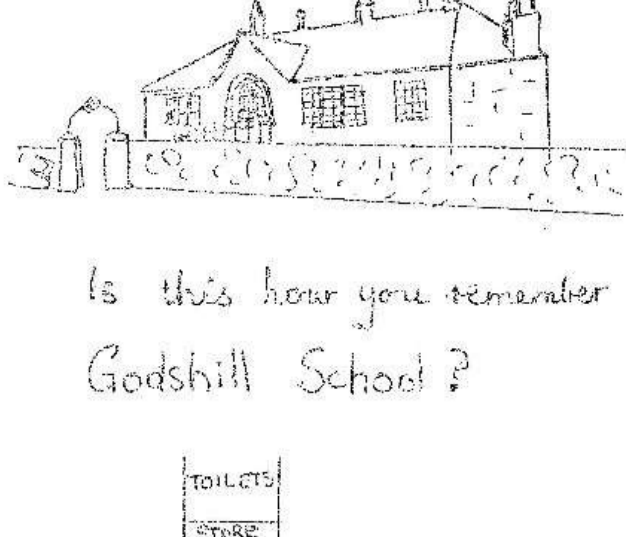 Is this how you remember
Godshill School?
TOILETS
STORE